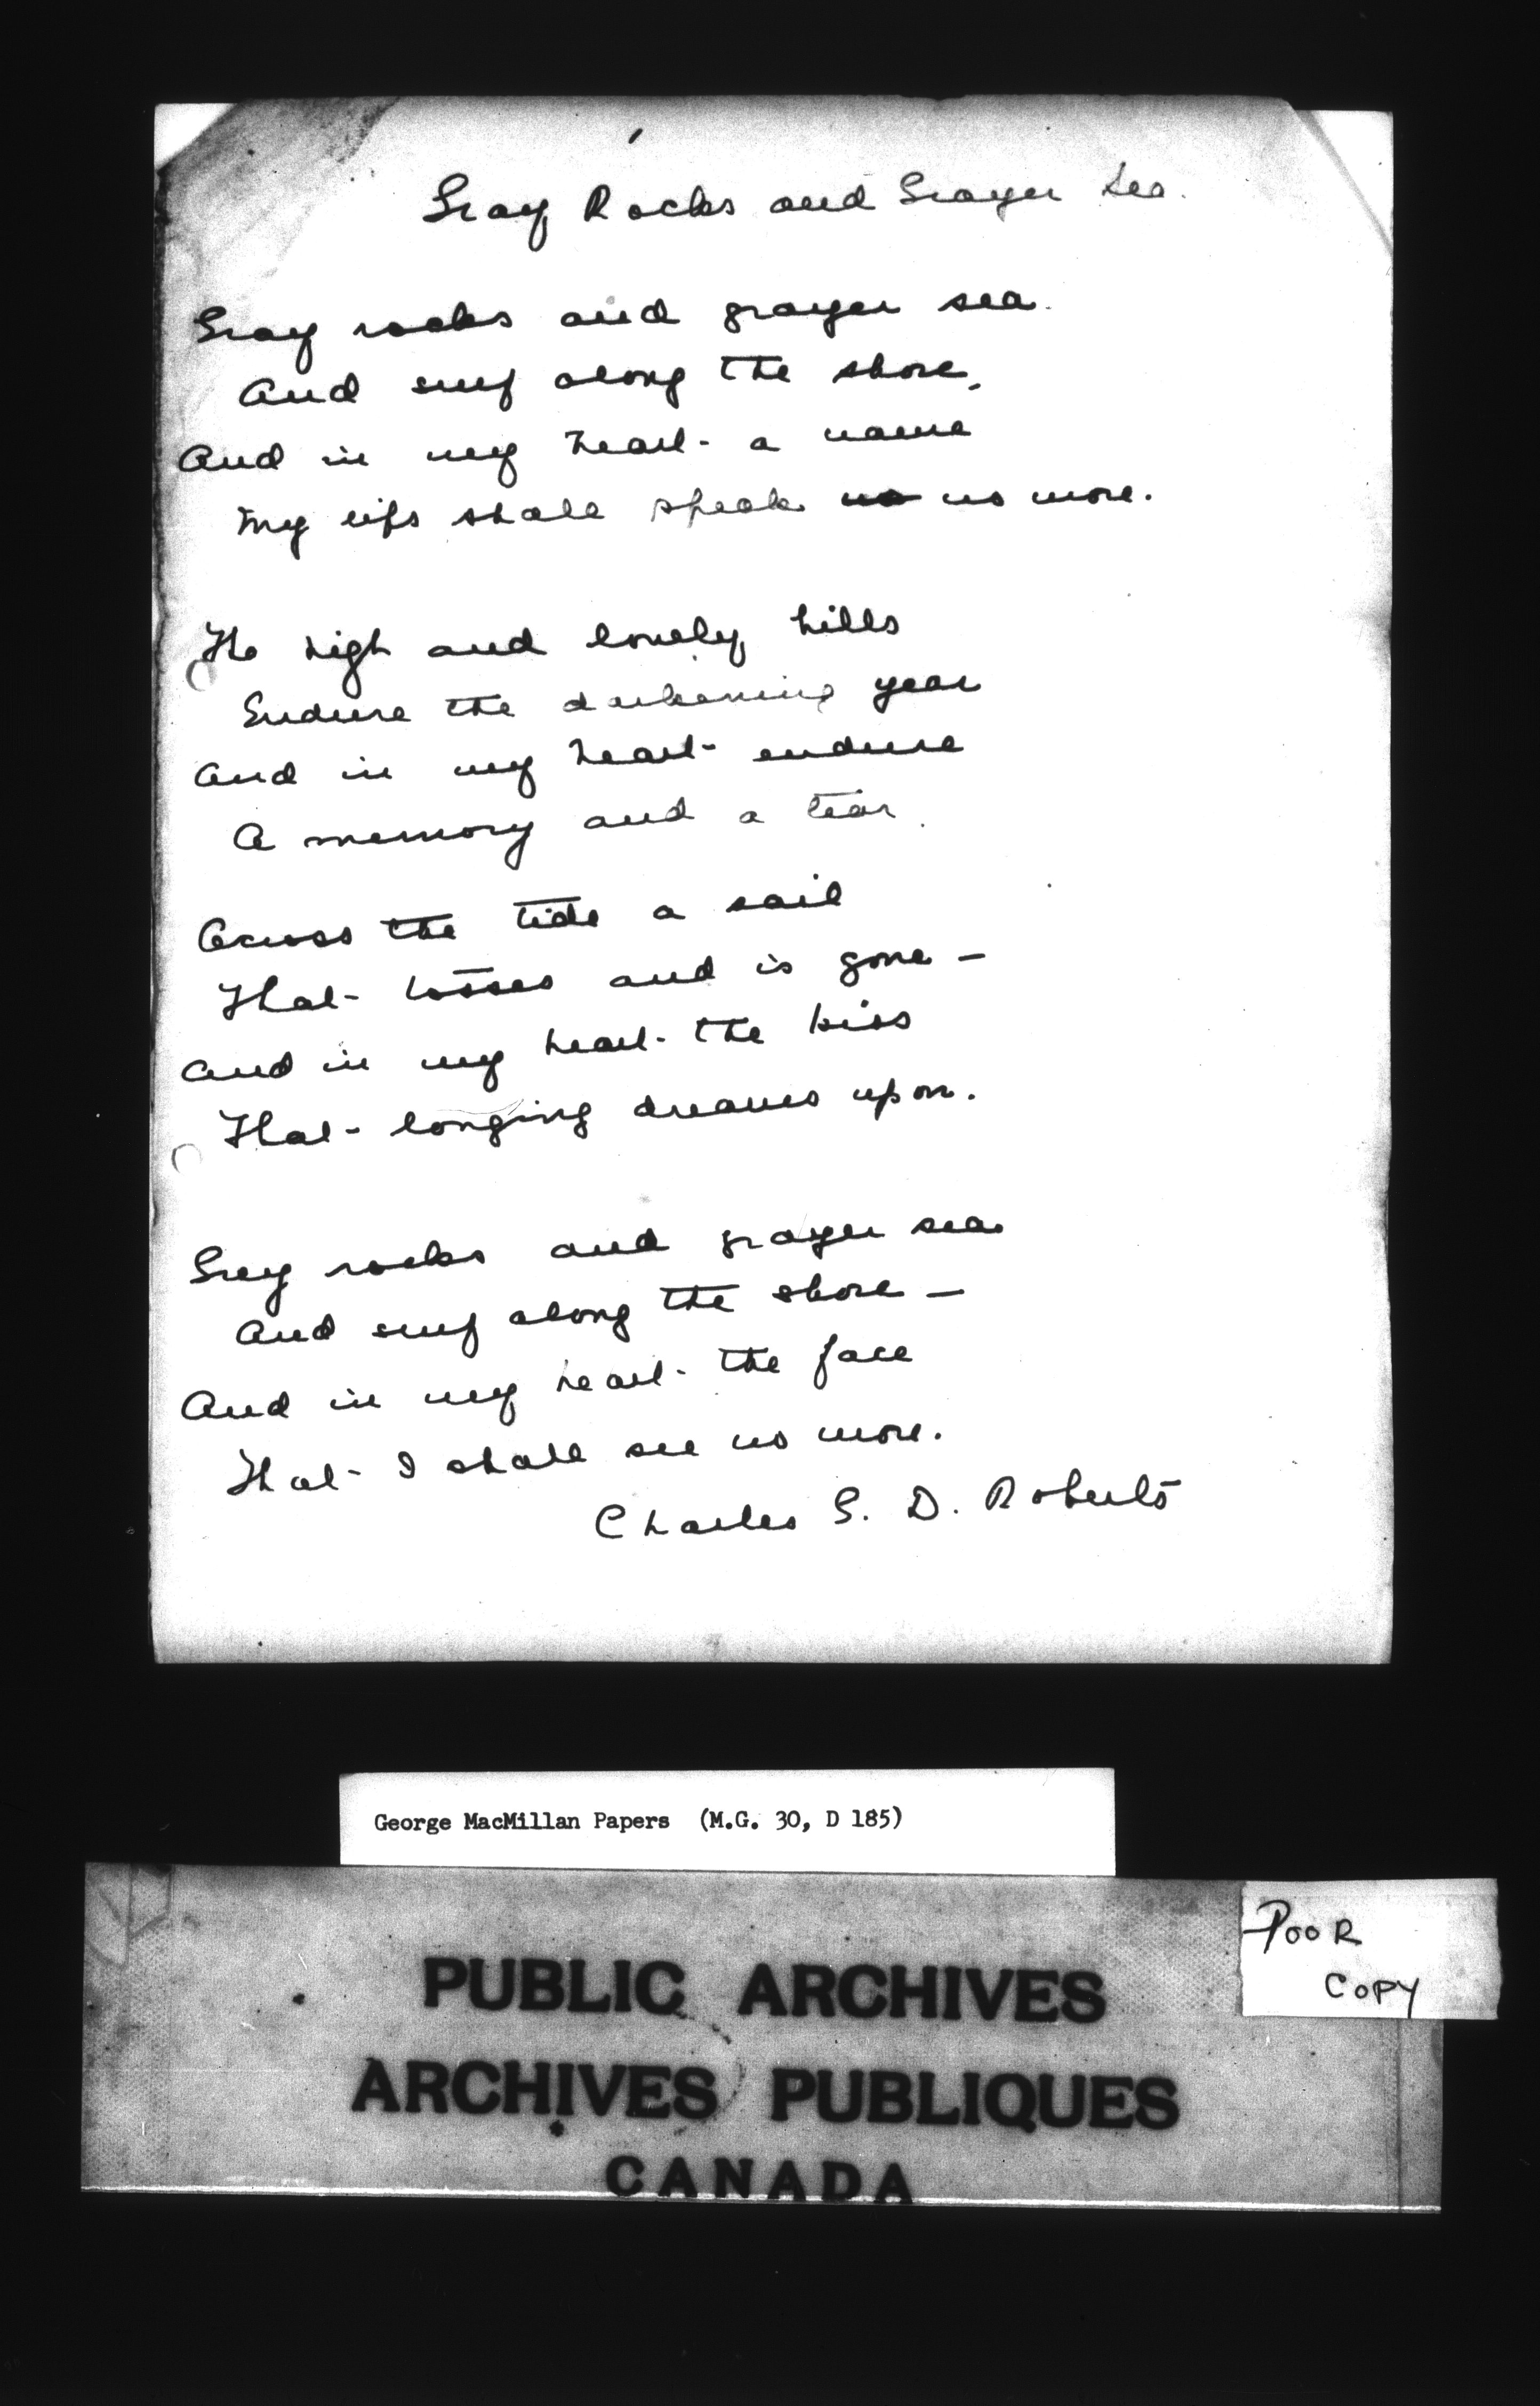 Gray Rocks and Grayer Sea.
Gray rocks and grayer sea.
And surf along the shore,
And in my heart - a name
My lips shall speak no no more.
The high and lonely hills
Endure the darkening year
And in my heart - endure
A memory and a tear.
Across the tide a sail
That - tosses and is gone -
And in my heart - the kiss
That - longing dreams upon.
Grey rocks and grayer sea
And surf along the shore -
And in my heart - the face
That - I shall see no more.
Charles G. D. Roberts
George MacMillan Papers (M.G. 30, D 185)
POOR
COPY
PUBLIC ARCHIVES
ARCHIVES PUBLIQUES
CANADA